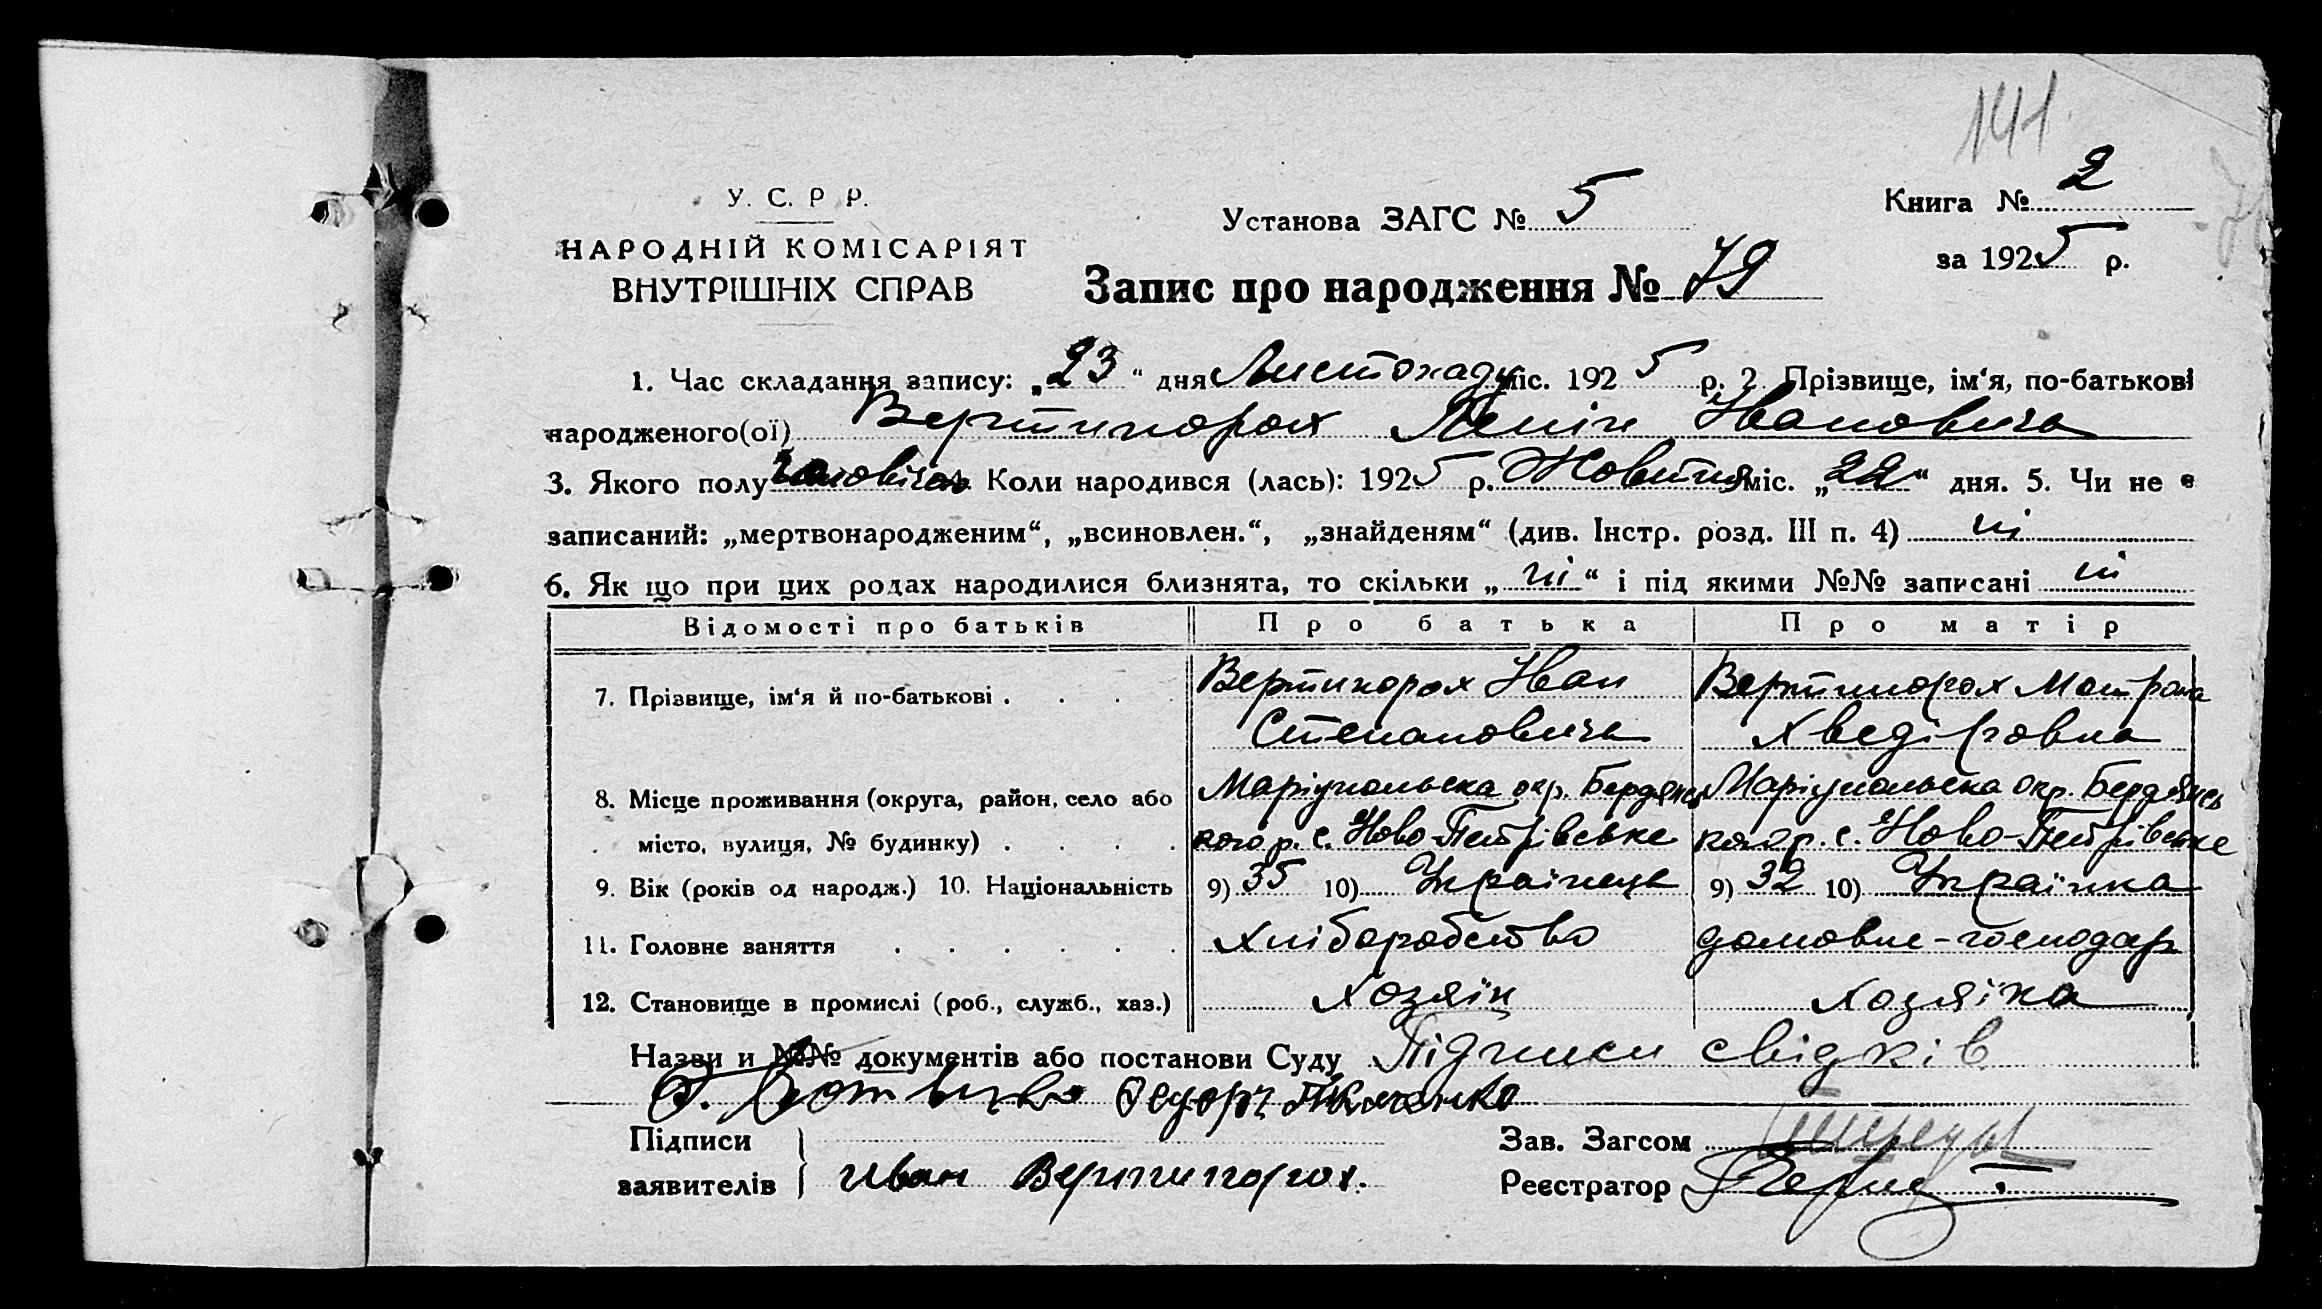 141
У. С. Р Р.
Установа ЗАГС № 5
Книга № 2
НАРОДНІЙ КОМІСАРІЯТ
ВНУТРІШНІХ СПРАВ
за 1925 р.
Запис про народження № 79
1. Час складання запису: „23“ дня Листопаду міс. 1925 р. 2. Прізвище, ім‘я, по-батькові
народженого(ої) Вертипорох Ленін Ивановичь
3. Якого полу чоловічого Коли народився (лась): 1925 р. Жовтня міс. „22“ дня. 5. Чи не є
записаний: „мертвонародженим“, „всиновлен.“, „знайденям“ (див. Інстр. розд. III п. 4) ні
6. Як що при цих родах народилися близнята, то скільки „ні“ і під якими №№ записані ні
Відомості про батьків Про батька Про матір
7. Прізвище, ім‘я й по-батькові . . . . Вертипорох Иван Вертипорох Мотрона
Степановичь Хведіровна
8. Місце проживання (округа, район, село або Маріупольска окр. Бердянсь Маріупольска окр. Бердянсь
місто, вулиця, № будинку) . . . . кого р. с. Ново-Петрівське кого р. с. Ново-Петрівське
9. Вік (років од народж.) 10. Національність 9) 35 10) Українець 9) 32 10) Українка
11. Головне заняття . . . . . . Хліборобство домовне-господар
12. Становище в промислі (роб., служб., хаз.) хозяїн хозяїка
Назви и №№ документів або постанови Суду Підписи свідків
Підписи
Зав. Загсом
заявителів Иван Вертипорох.
Реєстратор